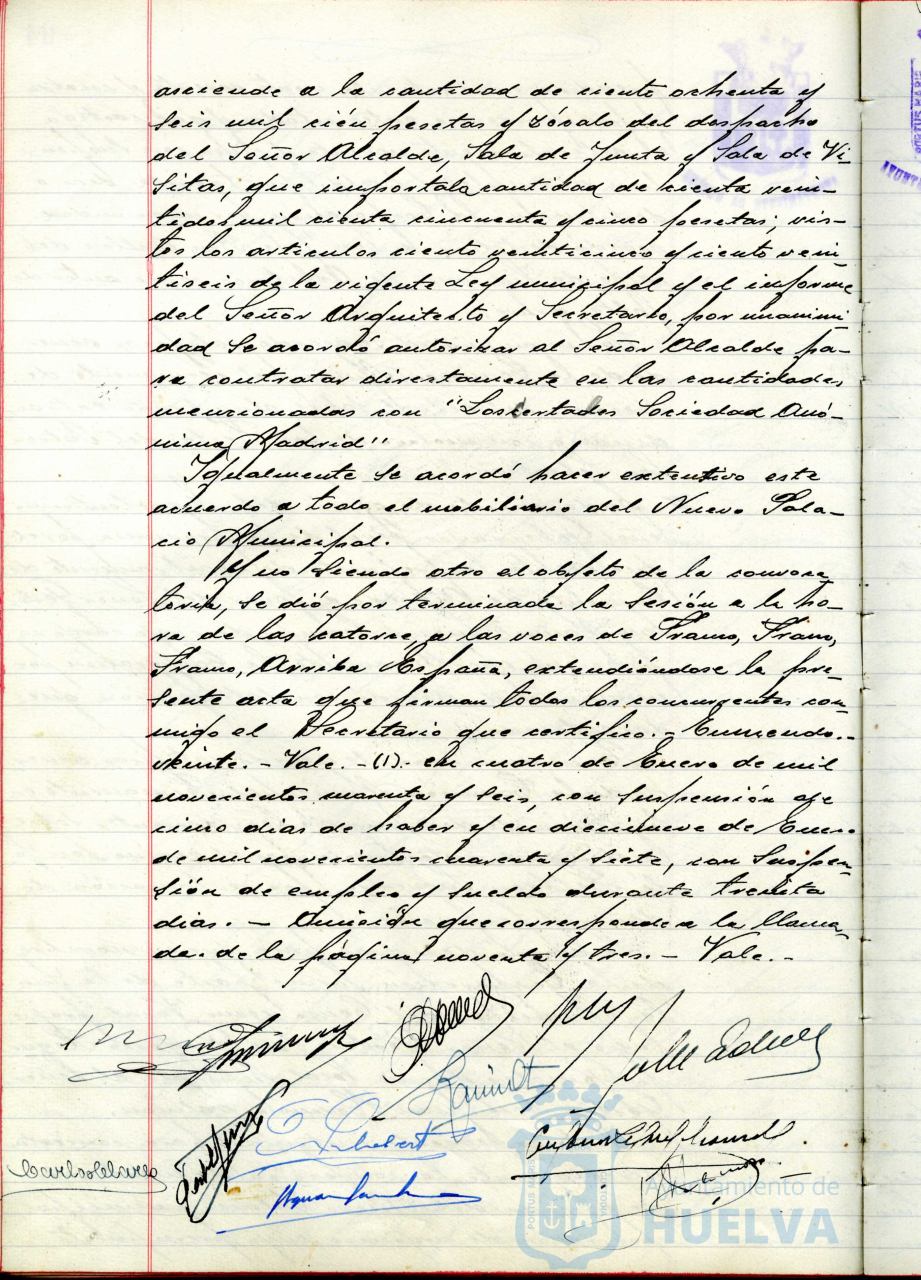 asciende a la cantidad de ciento ochenta y
seis mil cién pesetas y zócalo del despacho
del Señor Alcalde, Sala de Junta y Sala de Vi-
sitas, que importa la cantidad de ciento vein-
tidos mil ciento cincuenta y cinco pesetas; vis-
tos los articulos ciento veinticinco y ciento vein
tiseis de la vigente Ley municipal y el informe
del Señor Arquitecto y Secretario, por unanimi
dad se acordó autorizar al Señor Alcalde pa-
ra contratar directamente en las cantidades
mencionadas con "Loscertales Sociedad Anó-
nima Madrid"
Igualmente se acordó hacer extentivo este
acuerdo a todo el mobiliario del Nuevo Pala-
cio Municipal.
Y no siendo otro el objeto de la convoca
toria, se dió por terminada la sesión a la ho-
ra de las catorce, a las voces de Franco, Franco,
Franco, Arriba España, extendiéndose la pre
sente acta que firman todos los concurrentes con-
migo el Secretario que certifico. - Enmendo.-
veinte. - Vale. - (1).- en cuatro de Enero de mil
novecientos cuarenta y seis, con suspensión de
cinco dias de haber y en diecinueve de Enero
de mil novecientos cuarenta y siete, con suspen-
sión de empleo y sueldo durante treinta
dias. - Omisión que corresponde a la llama-
da. de la página noventa y tres. - Vale. -
Ayuntamiento de
HUELVA